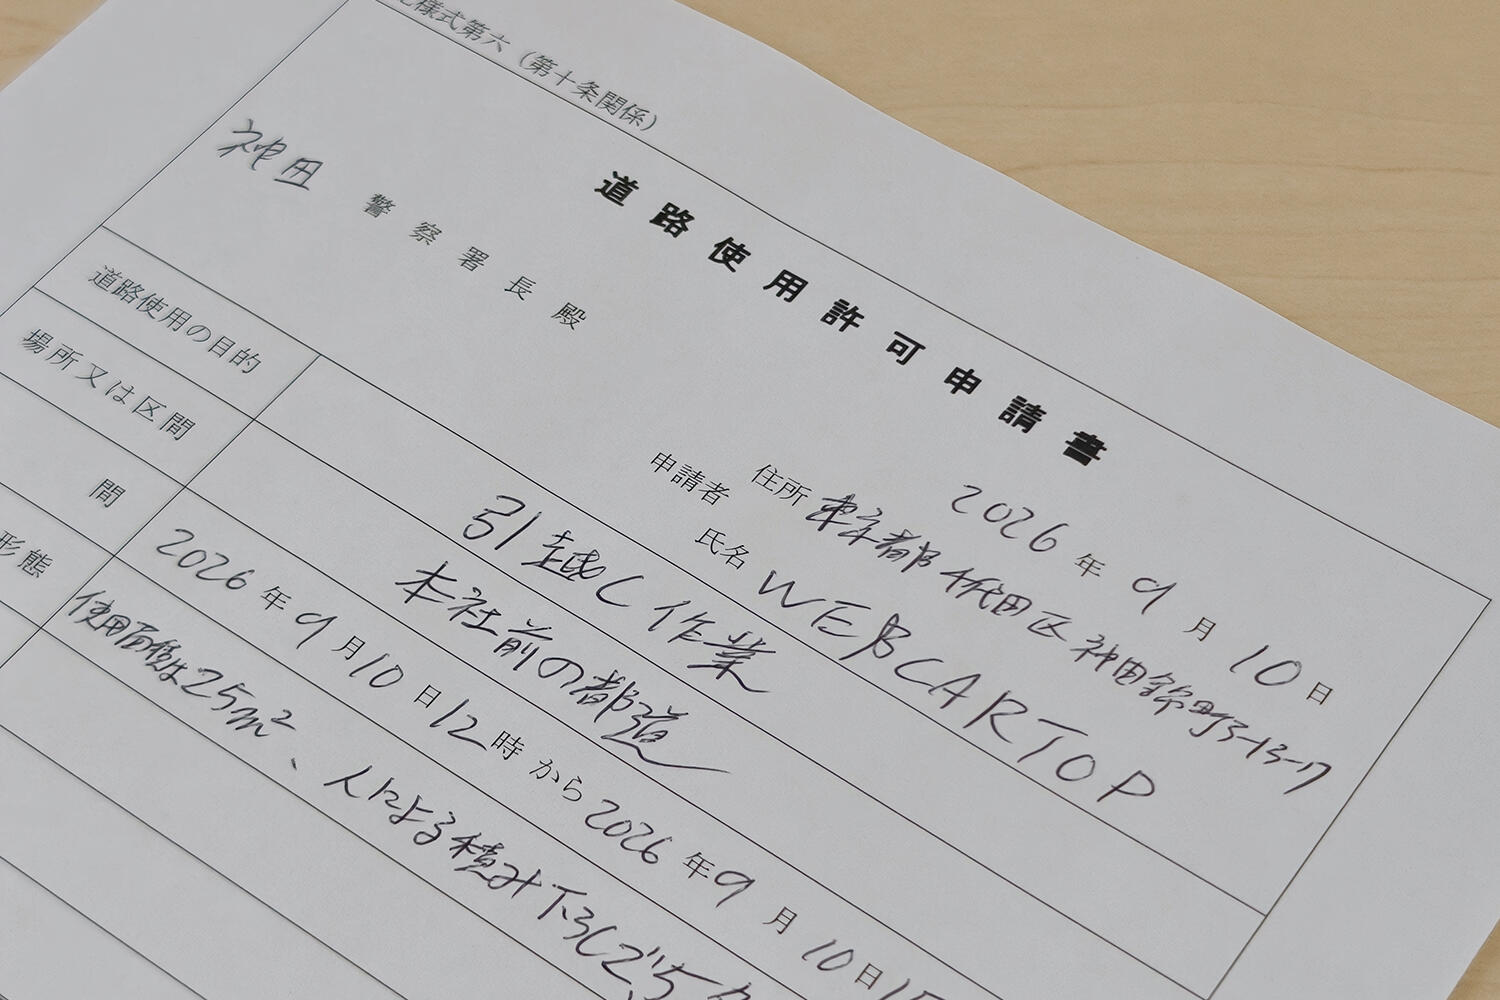 様式第六（第十条関係）
道路使用許可申請書
2026年9月10日
神田警察署長殿
住所 東京都千代田区神田錦町3-13-7
申請者
氏名 WEBCARTOP
道路使用の目的 引越し作業
場所又は区間 本社前の都道
間 2026年9月10日12時から2026年9月10日
形態 使用面積は25m²、人による積み下ろしで